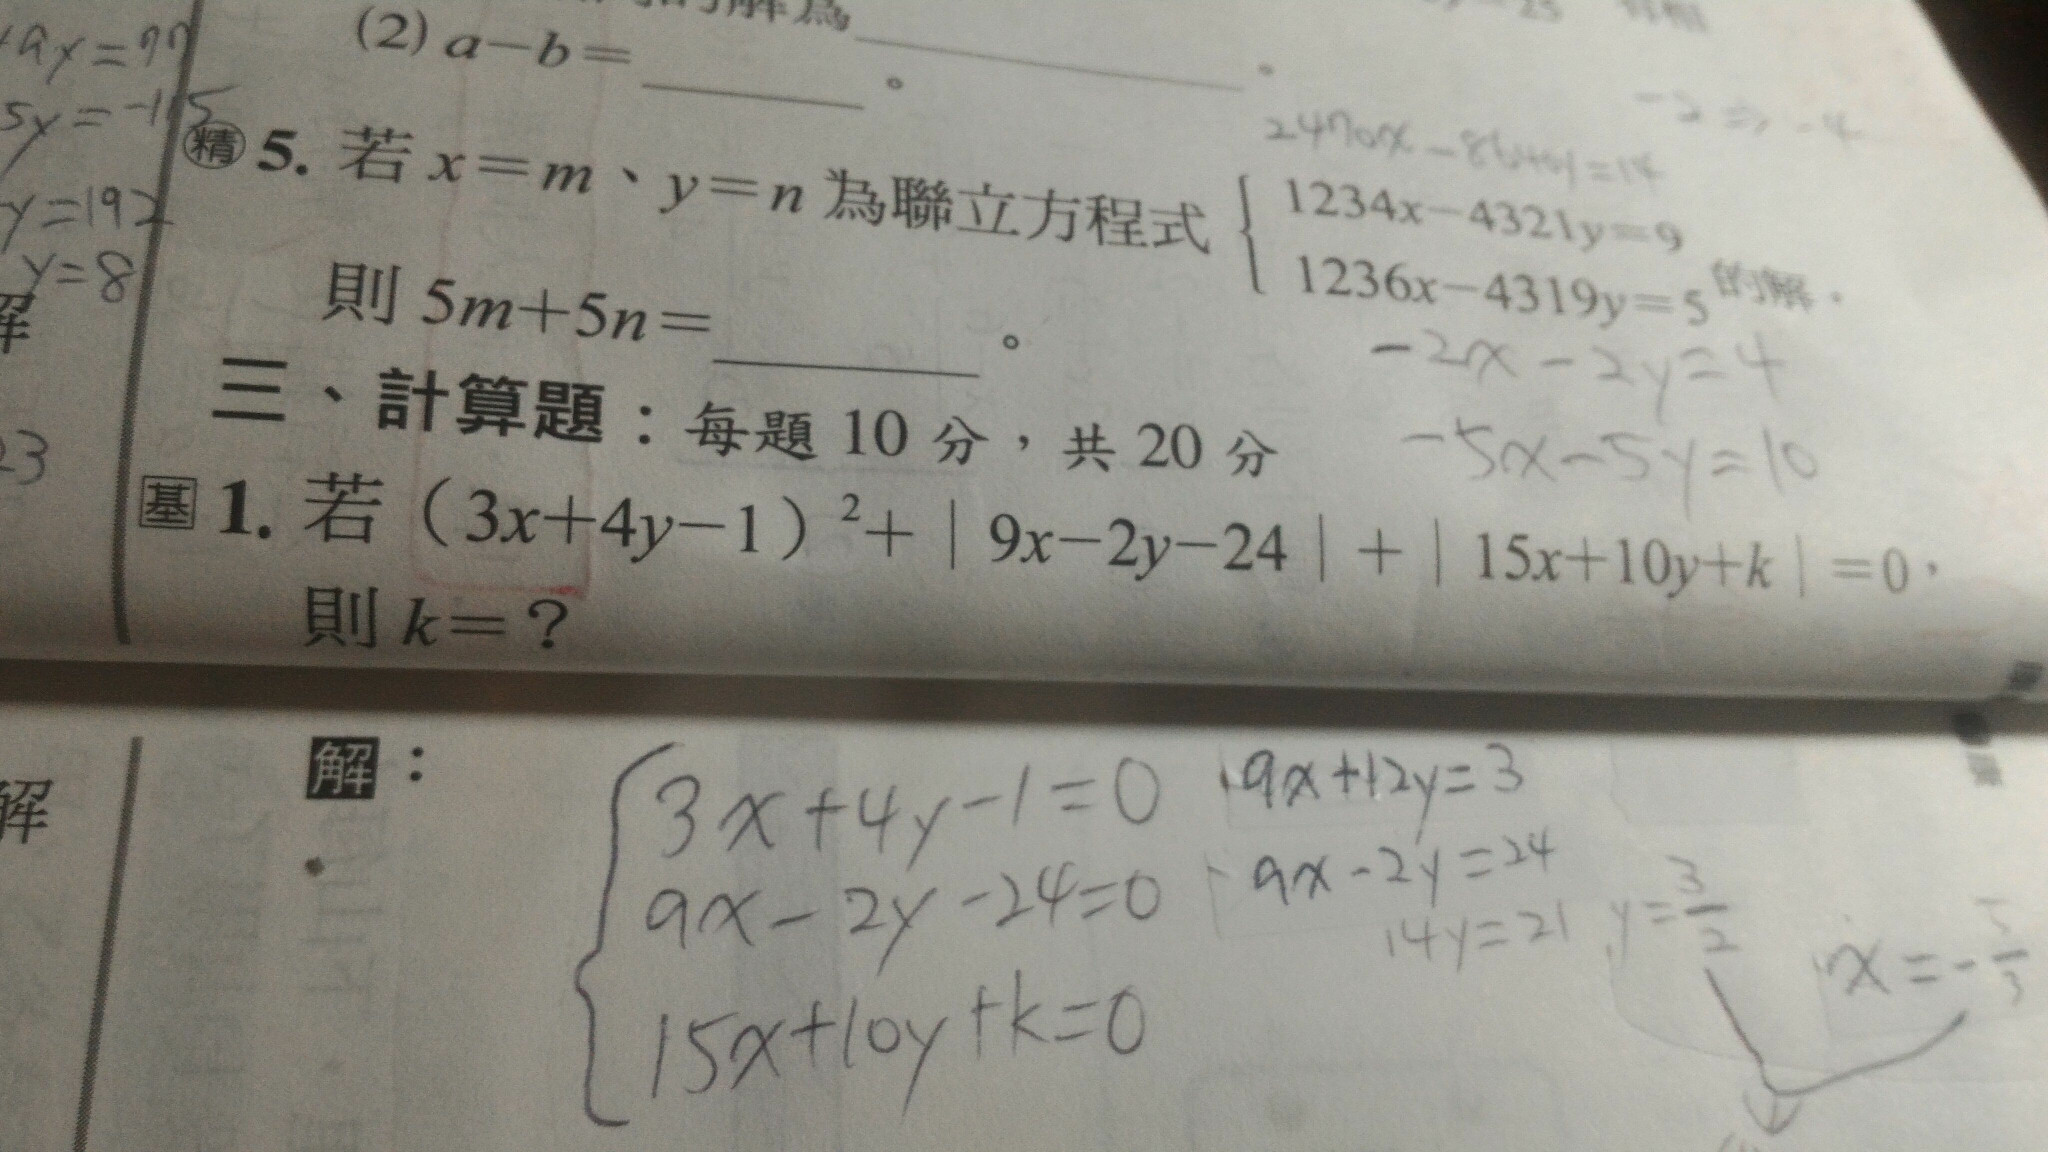 的解為
+9x=77
(2) a-b=______。
5y=-115
-2 ⇒ -4
2470x-8640y=14
精 5. 若 x=m、y=n 為聯立方程式 { 1234x-4321y=9
1236x-4319y=5 的解,
y=192
y=8
則 5m+5n=______。
-2x-2y=4
三、計算題：每題 10 分，共 20 分
-5x-5y=10
23
基 1. 若（3x+4y-1）²+｜9x-2y-24｜+｜15x+10y+k｜=0，
則 k=？
解：
3x+4y-1=0
9x+12y=3
9x-2y-24=0
9x-2y=24
14y=21 y=3/2
x=-5/3
15x+10y+k=0
解